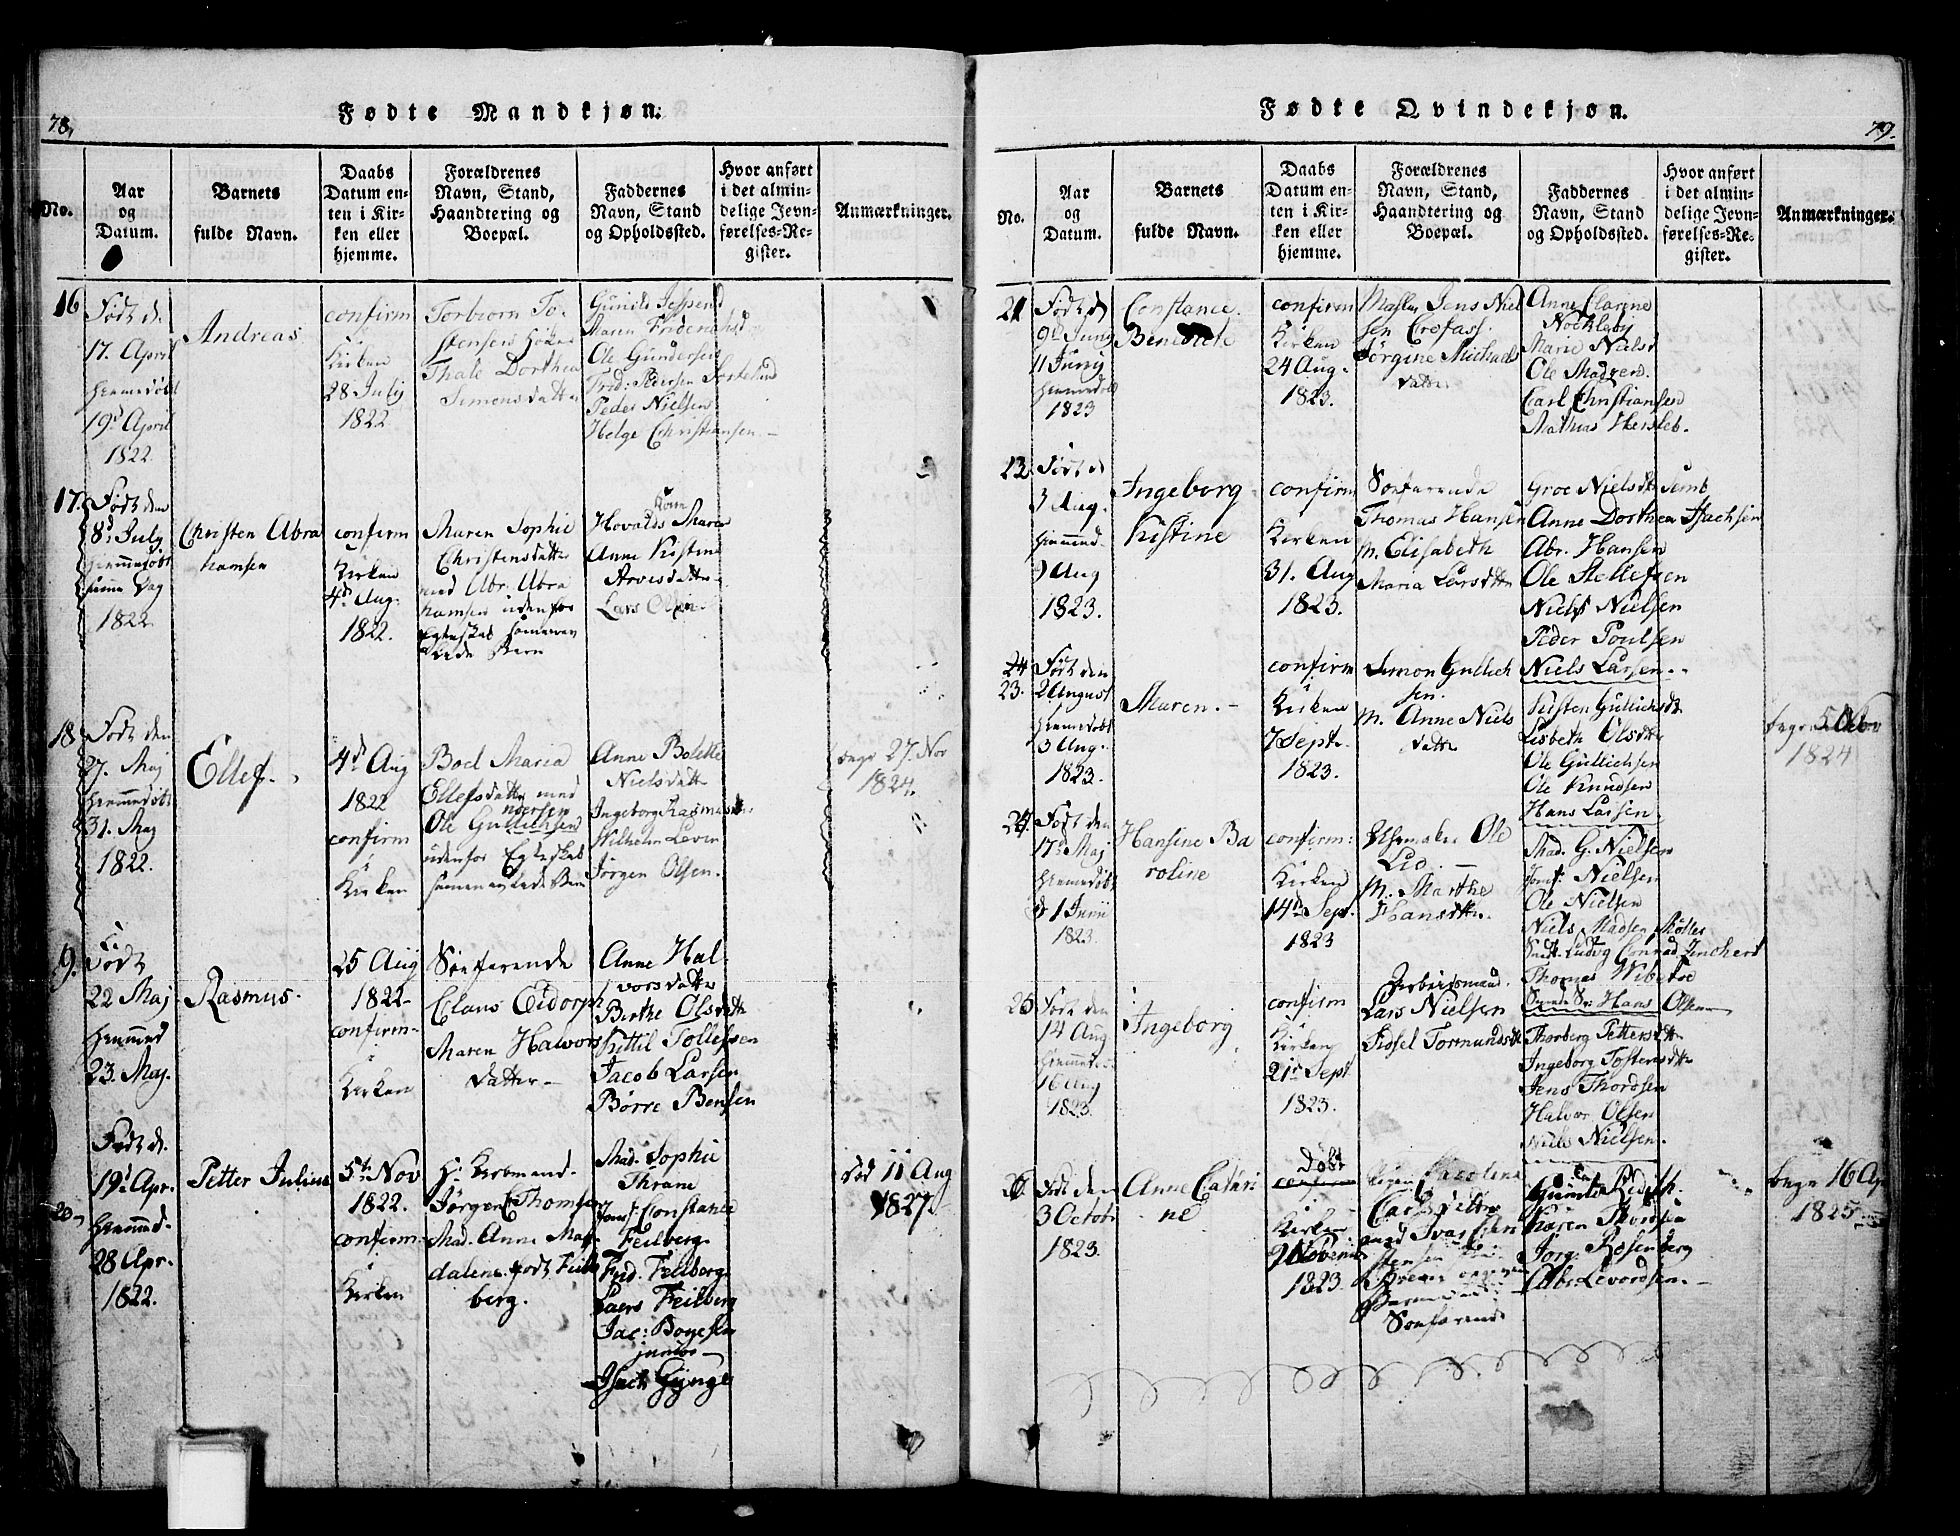 78,
Fødte Mandkjøn.
No.
Aar
og
Datum.
Barnets
fulde Navn.
Daabs
Datum en-
ten i Kir-
ken eller
hjemme.
Forældrenes
Navn, Stand,
Haandtering og
Boepæl.
Faddernes
Navn, Stand
og Opholdssted.
Hvor anført
i det almin-
delige Jevn-
førelses-Re-
gister.
Anmærkninger.
16
Født d.
17. April
hjemmedøbt
19d April
1822
Andreas
confirm
i
Kirken
28 July
1822
Torbiorn To-
stensen
Thale Dorthea
Simonsdatter
Gunild Jespersd
Maren Fridenlund
Ole Gundersen
Frid: Pedersen
Peder Nielsen
Helge Christiansen.-
17.
Født den
8d July
hjemmedøbt
samme Dag
1822.
Christen Abra
hamsen
confirm
i
Kirken
4d Aug.
1822.
Maren Sophie
Christensdatter
med Abr. Abra
hamsen udenfor
Egteskab
Hovalds Maren
Anne Kistine
Arvesdatter
Lars Olsen.
18
Født den
27. Maj
hjemmedøbt
31. Maj
1822.
Ellef.
4d Aug
1822
confirm
i
Kirken
Boel Maria
Ellefsdatter med
Ole Gullichsen
udenfor Egteskab
Anne Bolette
Nielsdatter
Ingeborg Rasmusdtr
Wilhelm Leven
Jørgen Olsen.
begr 27. Nov
1824.
9.
Født
22 Maj
hjemmed
23. Maj.
Rasmus.
25 Aug
1822-
confirm-
i
Kirken
Søefarende
Claus Eidorph
Maren Halvors
datter-
Anne Hal-
vorsdatter
Birthe Olsdatter
Kittil Tollefsen
Jacob Larsen
Børre Bensen
20-
Født d.
19d Apr.
hjemmed-
28 Apr.
1822.
Petter Julius
5te Nov
1822.
confirm:
i
Kirken
Hr. Kiøbmand
Jørgen Thomsen
Mad. Anne Mag-
dalene født Feil
berg.
Mad. Sophie
Thrane
Jomf: Constance
Feilberg.
Frid. Feilberg
Laers Feilberg
Jac: Boyesen
junior-
Isach Gjunge
død 11 Aug
1827
79.
Fødte Qvindekjøn.
No.
Aar
og
Datum.
Barnets
fulde Navn.
Daabs
Datum en-
ten i Kir-
ken eller
hjemme.
Forældrenes
Navn, Stand,
Haandtering og
Boepæl.
Faddernes
Navn, Stand
og Opholdssted.
Hvor anført
i det almin-
delige Jevn-
førelses-Re-
gister.
Anmærkninger.
21
Født d
9d Junij
11 Junij
hjemmedøbt
1823
Constance
Benedicte
confirm
i
Kirken
24 Aug.
1823.
Jens Niel
sen
Jørgine Michaels
datter
Anne Clarine
Marie Nielsd
Ole Madsen.
Carl Christiansen
Mathias Hersleb.
Født d
3 Aug.
hjemmed-
9 Aug
1823.
Ingeborg
Kistine
confirm
i
Kirken
31. Aug
1823.
Søefarende
Thomas Hansen
M. Elisabeth
Maria Larsdtr
Groe Nielsdtr
Anne Dorthea Isachsen
Abr. Hansen
Ole Stellefsen
Niels Nielsen
Peder Poulsen
Niels Larsen.-
23.
Født den
2 August
hjemmedøbt
3 Aug.
1823.
Maren.-
confirm
i
Kirken
7 Sept.
1823.
Simon Gullich
sen.
M. Anne Niels
datter
Kisten Gullichsdtr
Lisbeth Olsdtr
Ole Gullichsen
Ole Knudsen
Hans Larsen.
begr. 5
1824
24.
Født den
17d Maj
hjemmedøbt
d 1 Junii
1823.
Hansine Ba
roline
confirm:
i
Kirken
14d Sept.
1823
Ole
Lid
M. Marthe
Hansdtr.
Mad. G. Nielsen
Jomf: Nielsen
Ole Nielsen
Niels Madsen
Ludvig Conrad
Thomas Wibetoe
Hans Olsen
25
Født den
14 Aug
hjemmed
16 Aug
1823.
Ingeborg
confirm
i
Kirken
21d Sept
1823.
Arbeidsmand.
Lars Nielsen
Sidsel Tormundsdtr
Thorberg Pettersdtr
Ingeborg Tostensdtr
Jens Thordsen
Halvor Olsen
Niels Nielsen.
Født den
3 Octobr
1823.
Anne Cathri
ne
Døbt
i
Kirken
9 Novemb
1823.
Carolina
Carlsdatter
med Ivar
Jensen
Søefarende
Karen Thordsen
Jørg. Rosenberg
Abr. Levordsen.-
begr 16 Ap
1825